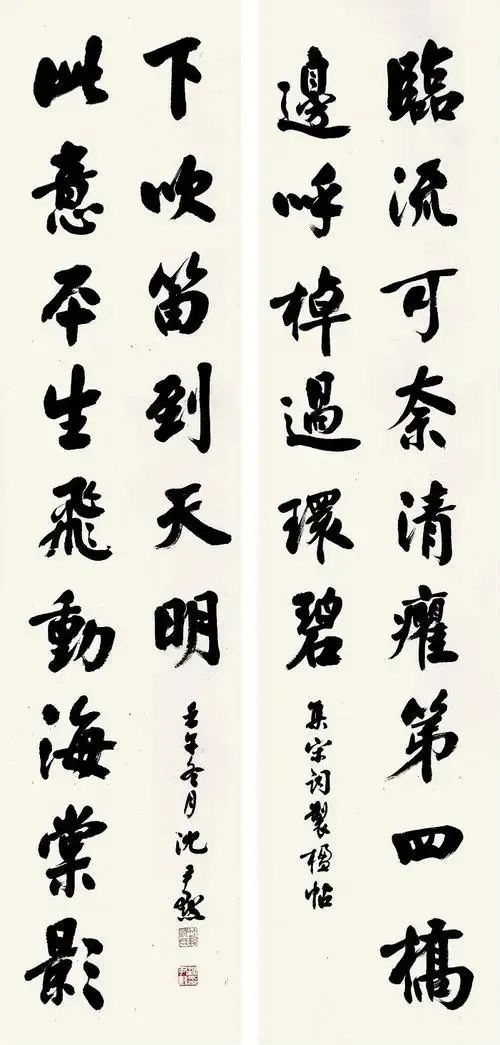 臨流可奈清癯第四橋
邊呼棹過環碧
集宋詞製楹帖
此意平生飛動海棠影
下吹笛到天明
壬午冬月沈尹默